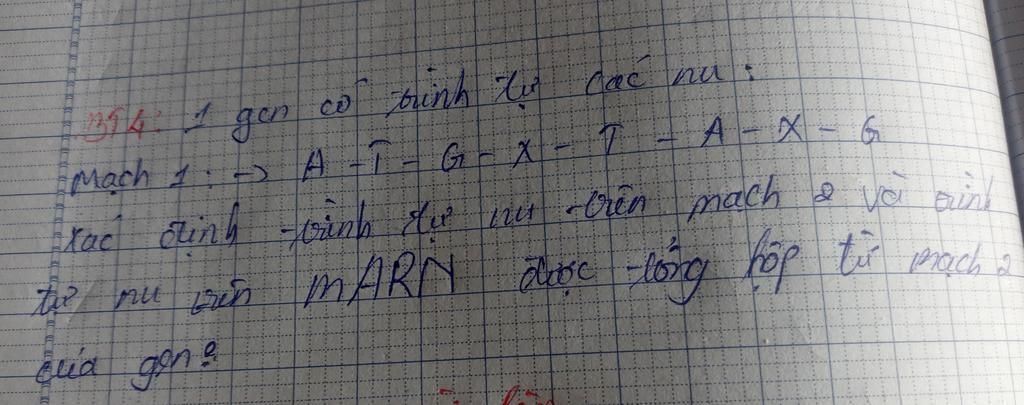 BT4: 1 gen có trình tự các nu:
Mạch 1: -> A - T - G - X - T - A - X - G
xác định trình tự nu trên mạch 2 và trình
tự nu trên mARN được tổng hợp từ mạch 2
của gen?